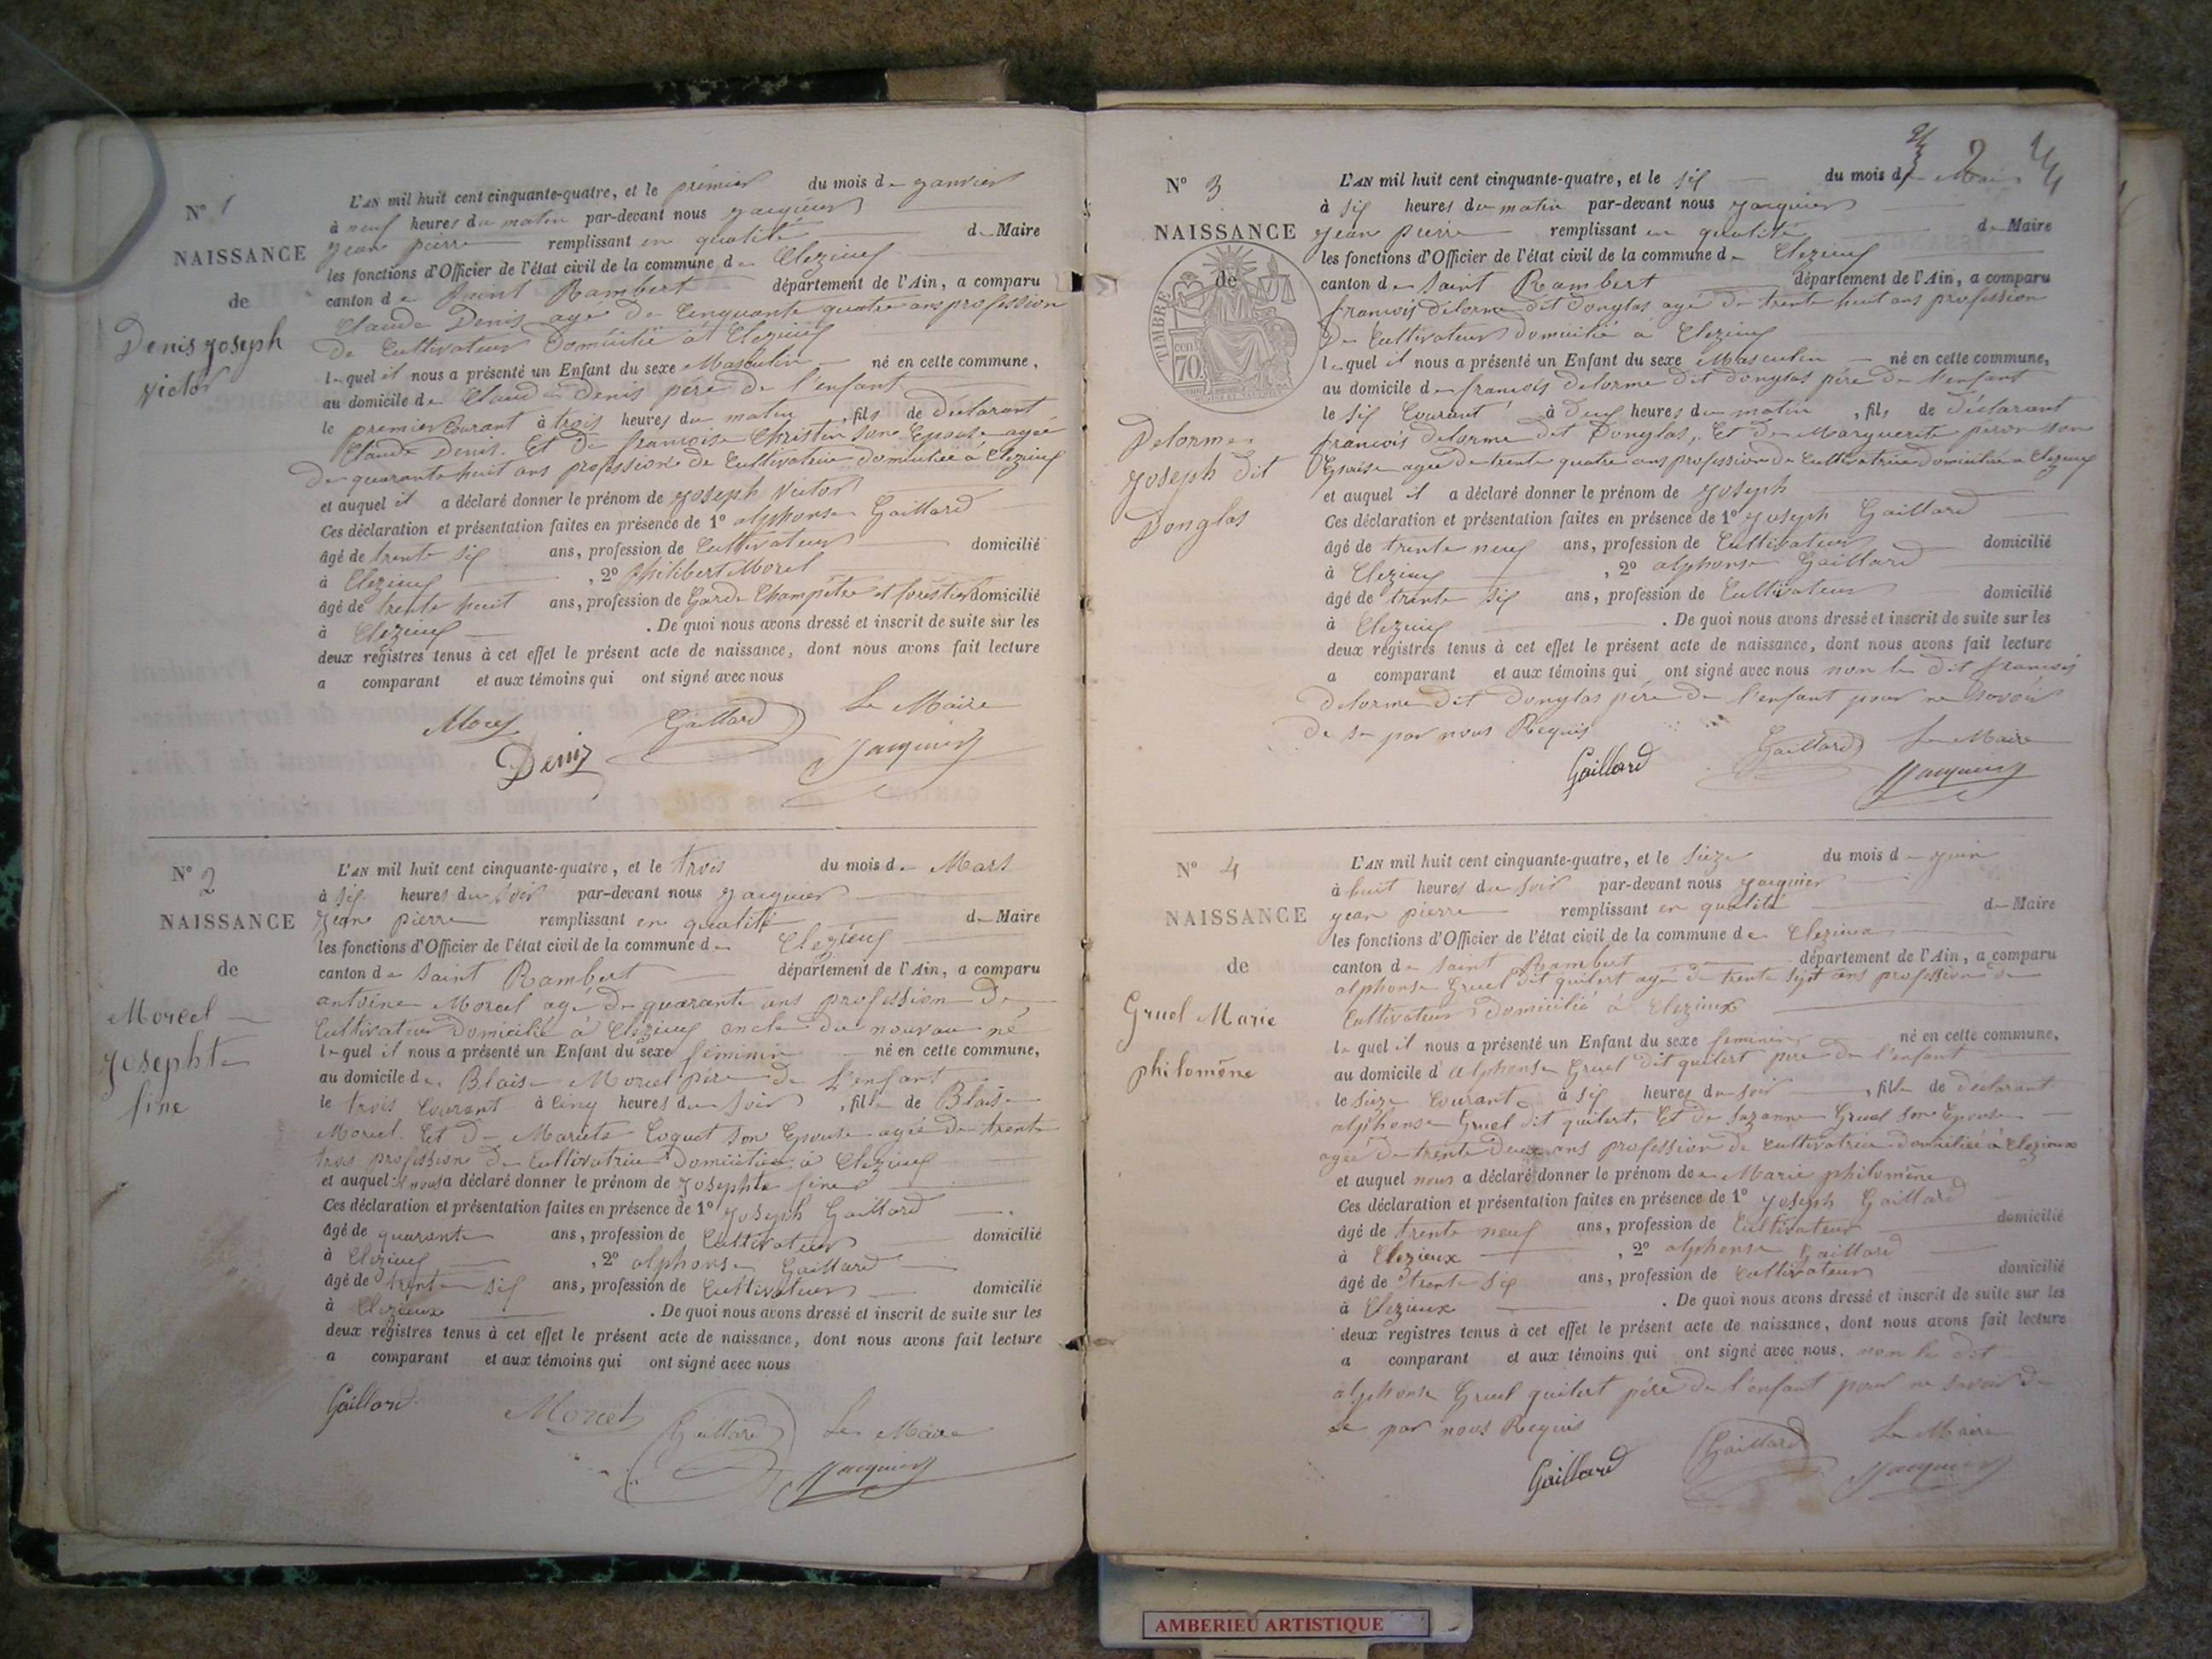 N° 1
NAISSANCE
de
Denis joseph
victor
L'AN mil huit cent cinquante-quatre, et le premier du mois de janvier
à neuf heures du matin par-devant nous jacquier
jean pierre remplissant en qualité de Maire
les fonctions d'Officier de l'état civil de la commune de Clezieux
canton de Saint Rambert département de l'Ain, a comparu
Claude Denis agé de Cenquante quatre ans profession
De Cultivateur Domicilié at Clezieux
lequel il nous a présenté un Enfant du sexe Masculin né en cette commune,
au domicile de Claude Denis père de l'enfant
le premier Courant à trois heures du matin, fils de Déclarant
Claude Denis. Et De francoise Christin sone Epouse agée
De quarante huit ans profession de Cultivatrice domiciliée à Clezieux
et auquel il a déclaré donner le prénom de joseph victor
Ces déclaration et présentation faites en présence de 1° alphonse Gaillard
âgé de trente six ans, profession de Cultivateur domicilié
à Clezieux, 2° philibert Morel
âgé de trente huit ans, profession de Garde Champêtre et forestier domicilié
à Clezieux. De quoi nous avons dressé et inscrit de suite sur les
deux registres tenus à cet effet le présent acte de naissance, dont nous avons fait lecture
a comparant et aux témoins qui ont signé avec nous
Morel Gaillard Le Maire
Deniz Jacquier
N° 2
NAISSANCE
de
Morcel
josephte
fine
L'AN mil huit cent cinquante-quatre, et le trois du mois de Mars
à six heures du soir par-devant nous jacquier
jean pierre remplissant en qualité de Maire
les fonctions d'Officier de l'état civil de la commune de Clezieux
canton de saint Rambert département de l'Ain, a comparu
antoine Morcel agé de quarante ans profession De
Cultivateur Domicilié à Clezieux oncle du nouvau né
lequel il nous a présenté un Enfant du sexe féminin né en cette commune,
au domicile de Blaise Morcel père de L'enfant
le trois Courant à Cinq heures du soir, fille de Blaise
Morcel. Et De Mariete Coquet son Epouse agée De trente
trois profession De Cultivatrice Domiciliée à Clezieux
et auquel il nous a déclaré donner le prénom de josephte fine
Ces déclaration et présentation faites en présence de 1° joseph Gaillard
âgé de quarante ans, profession de Cultivateur domicilié
à Clezieux, 2° alphonse Gaillard
âgé de trente six ans, profession de Cultivateur domicilié
à Clezieux. De quoi nous avons dressé et inscrit de suite sur les
deux registres tenus à cet effet le présent acte de naissance, dont nous avons fait lecture
a comparant et aux témoins qui ont signé avec nous
Gaillard Morcel Gaillard Le Maire
Jacquier
2
N° 3
NAISSANCE
de
TIMBRE
70
Delorme
joseph dit
Donglas
L'AN mil huit cent cinquante-quatre, et le six du mois de Mai
à six heures du matin par-devant nous jacquier
jean pierre remplissant en qualité de Maire
les fonctions d'Officier de l'état civil de la commune de Clezieux
canton de saint Rambert département de l'Ain, a comparu
francois delorme dit donglas agé de trente huit ans profession
De Cultivateur domicilié a Clezieux
lequel il nous a présenté un Enfant du sexe Masculin né en cette commune,
au domicile de francois delorme dit donglas père de l'enfant
le six Courant à deux heures du matin, fils de Déclarant
francois delorme dit Donglas, Et de Marguerite peron son
Epouse agée de trente quatre ans profession de Cultivatrice domiciliée a Clezieux
et auquel il a déclaré donner le prénom de joseph
Ces déclaration et présentation faites en présence de 1° joseph Gaillard
âgé de trente neuf ans, profession de Cultivateur domicilié
à Clezieux, 2° alphonse Gaillard
âgé de trente six ans, profession de Cultivateur domicilié
à Clezieux. De quoi nous avons dressé et inscrit de suite sur les
deux registres tenus à cet effet le présent acte de naissance, dont nous avons fait lecture
a comparant et aux témoins qui ont signé avec nous non le dit francois
delorme dit donglas père de l'enfant pour ne savoir
De se par nous Requis
Gaillard Gaillard Le Maire
Jacquier
N° 4
NAISSANCE
de
Gruel Marie
philomène
L'AN mil huit cent cinquante-quatre, et le sieze du mois de juin
à huit heures du soir par-devant nous jacquier
jean pierre remplissant en qualité de Maire
les fonctions d'Officier de l'état civil de la commune de Clezieux
canton de saint Rambert département de l'Ain, a comparu
alphonse Gruel dit quitert agé de trente sept ans profession de
Cultivateur domicilié à Clezieux
lequel il nous a présenté un Enfant du sexe feminin né en cette commune,
au domicile d'alphonse Gruel dit quitert père de l'enfant
le sieze Courant à six heures du soir, fille de déclarant
alphonse Gruel dit quitert, Et de suzanne Gruel son Epouse
agée De trente Deux ans profession de cultivatrice domiciliée à Clezieux
et auquel nous a déclaré donner le prénom de Marie philomène
Ces déclaration et présentation faites en présence de 1° joseph Gaillard
âgé de trente neuf ans, profession de Cultivateur domicilié
à Clezieux, 2° alphonse Gaillard
âgé de trente six ans, profession de Cultivateur domicilié
à Clezieux. De quoi nous avons dressé et inscrit de suite sur les
deux registres tenus à cet effet le présent acte de naissance, dont nous avons fait lecture
a comparant et aux témoins qui ont signé avec nous. non le dit
alphonse Gruel quitert père de l'enfant pour ne savoir de
se par nous Requis
Gaillard Gaillard Le Maire
Jacquier
AMBERIEU ARTISTIQUE